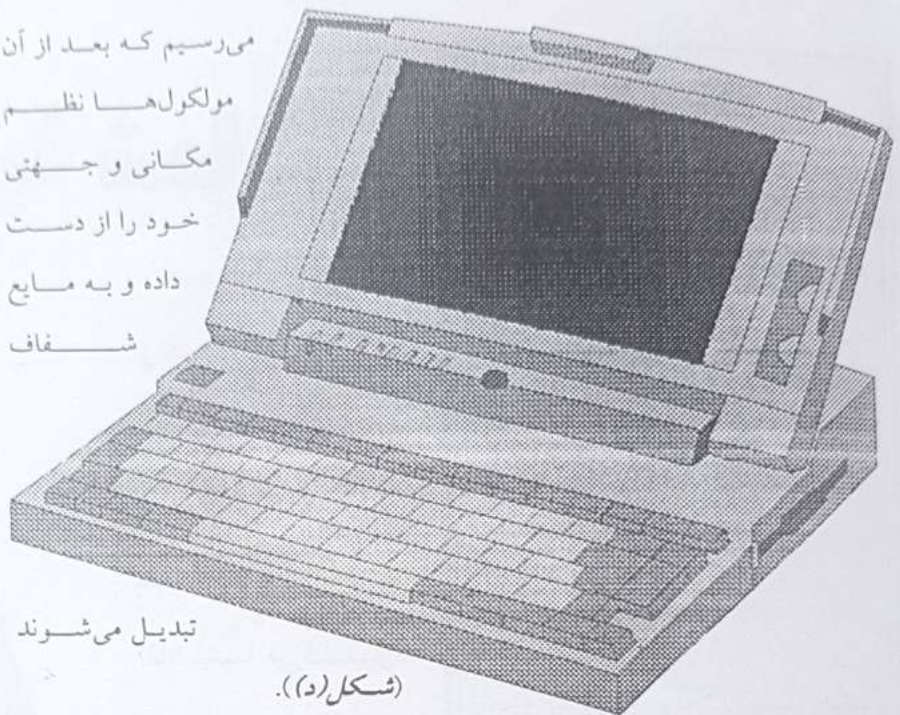 می‌رسیم که بعد از آن
مولکول‌ها نظم
مکانی و جهتی
خود را از دست
داده و به مایع
شفاف
تبدیل می‌شوند
(شکل(د)).